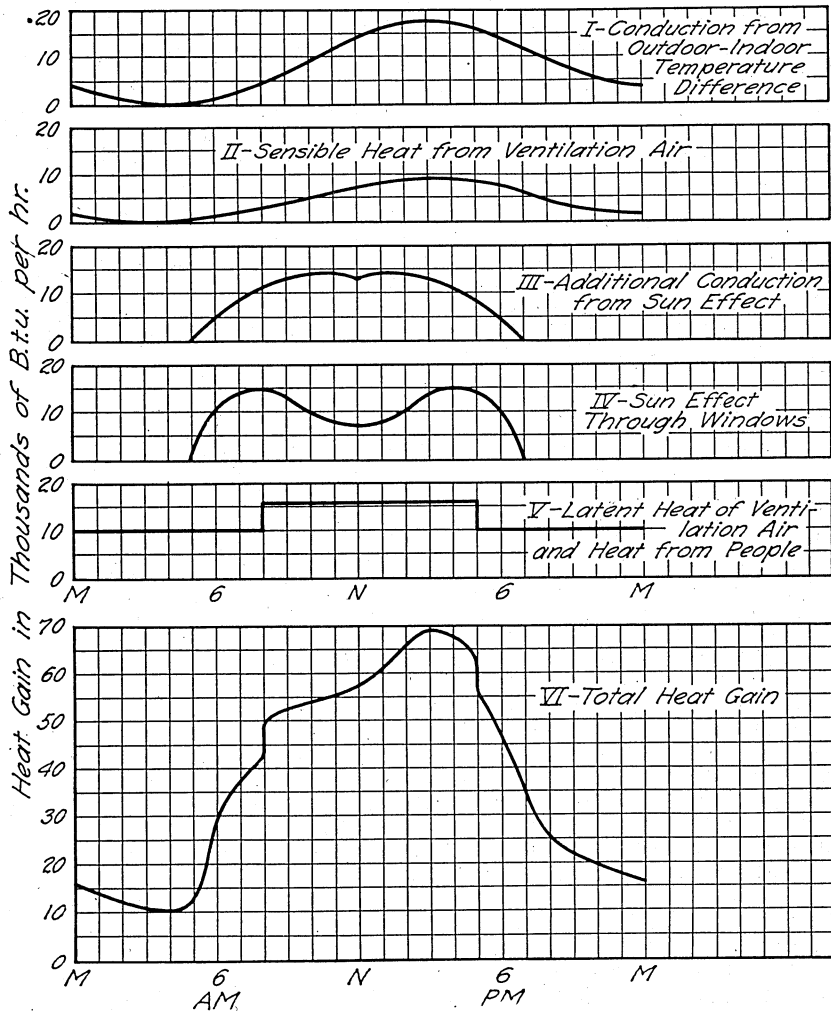 Heat Gain in Thousands of B.t.u. per hr.
20
10
0
I-Conduction from
Outdoor-Indoor
Temperature
Difference
20
10
0
II-Sensible Heat from Ventilation Air
20
10
0
III-Additional Conduction
from Sun Effect
20
10
0
IV-Sun Effect
Through Windows
20
10
0
V-Latent Heat of Venti-
lation Air
and Heat from People
M 6 N 6 M
70
60
50
40
30
20
10
0
VI-Total Heat Gain
M 6 N 6 M
AM PM